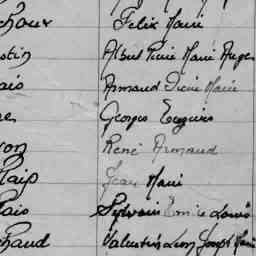 choux Felix Marie
stin Albert Pierre Marie Auger
ais Armand Pierre Marie
Georges Eugène
on René Armand
lais Jean Marie
lais Sylvain Emile Louis
chaud Valentin Léon Joseph Marie